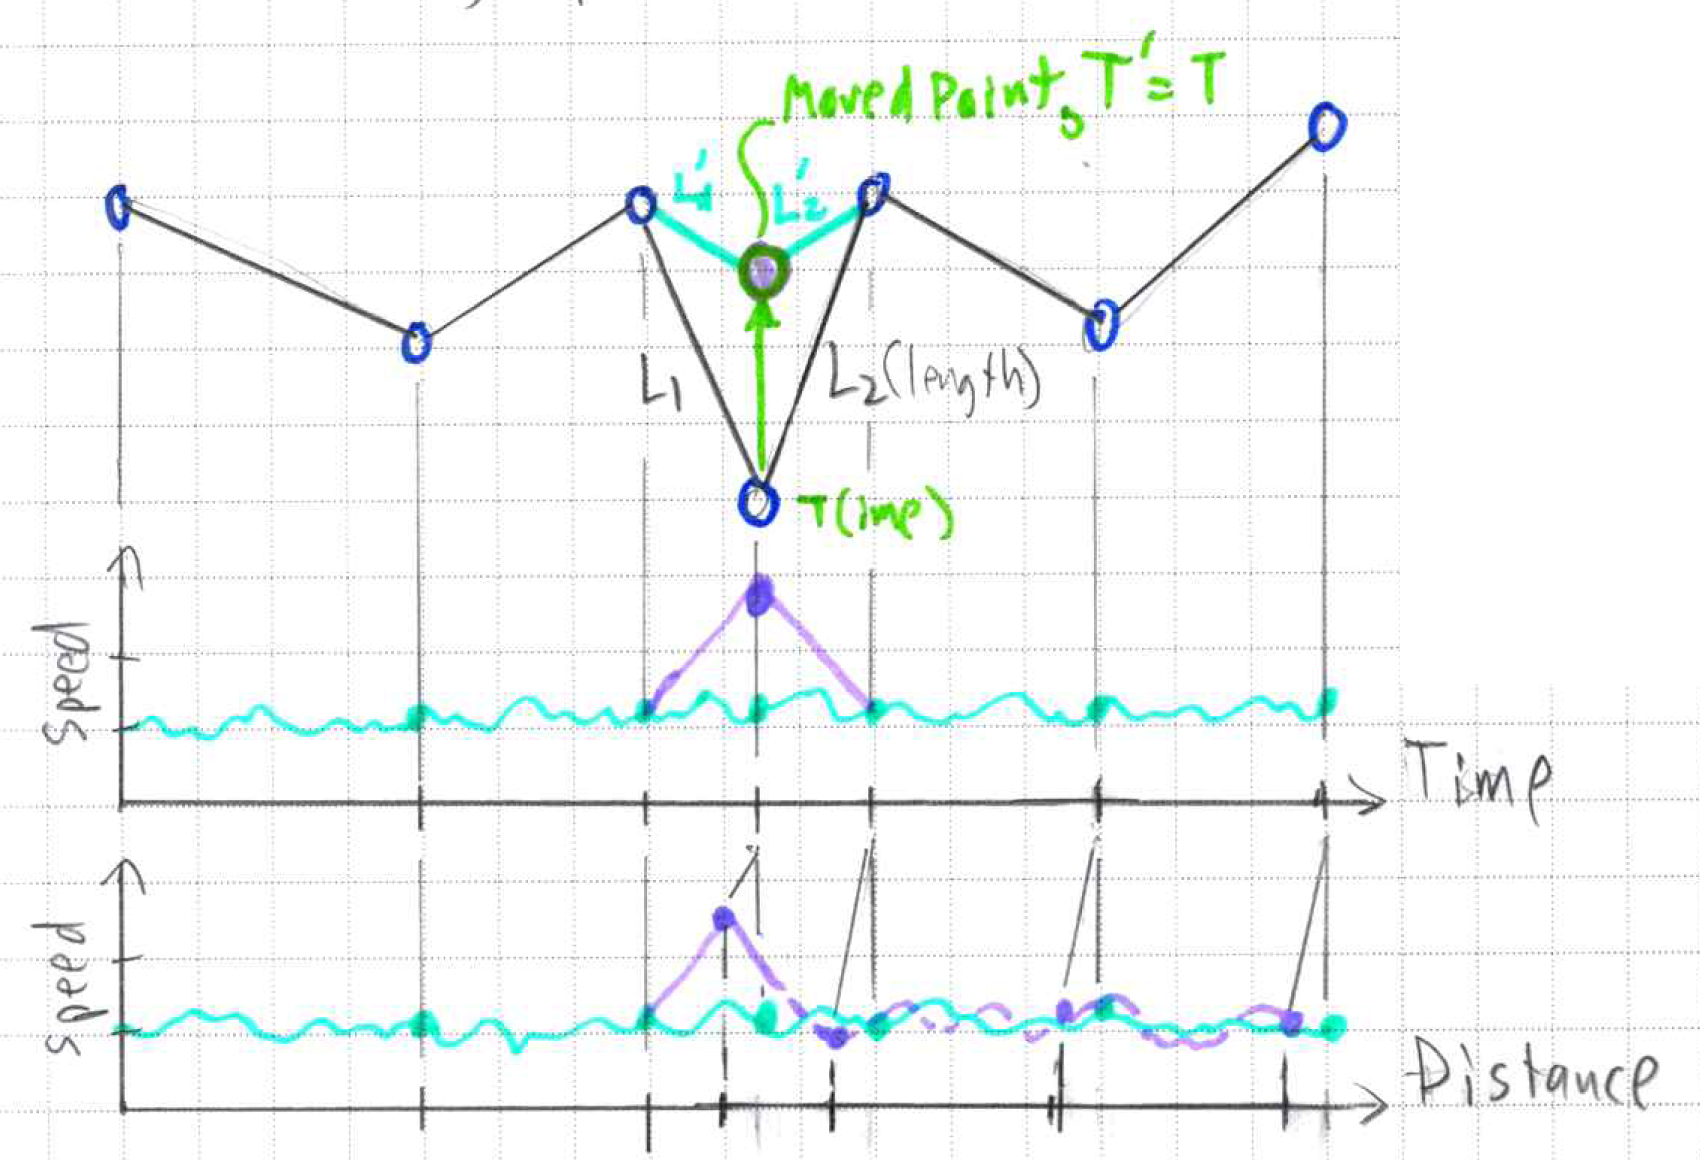 Moved Point, T' = T
L'1
L'2
L1
L2 (length)
T(ime)
Speed
Time
Speed
Distance